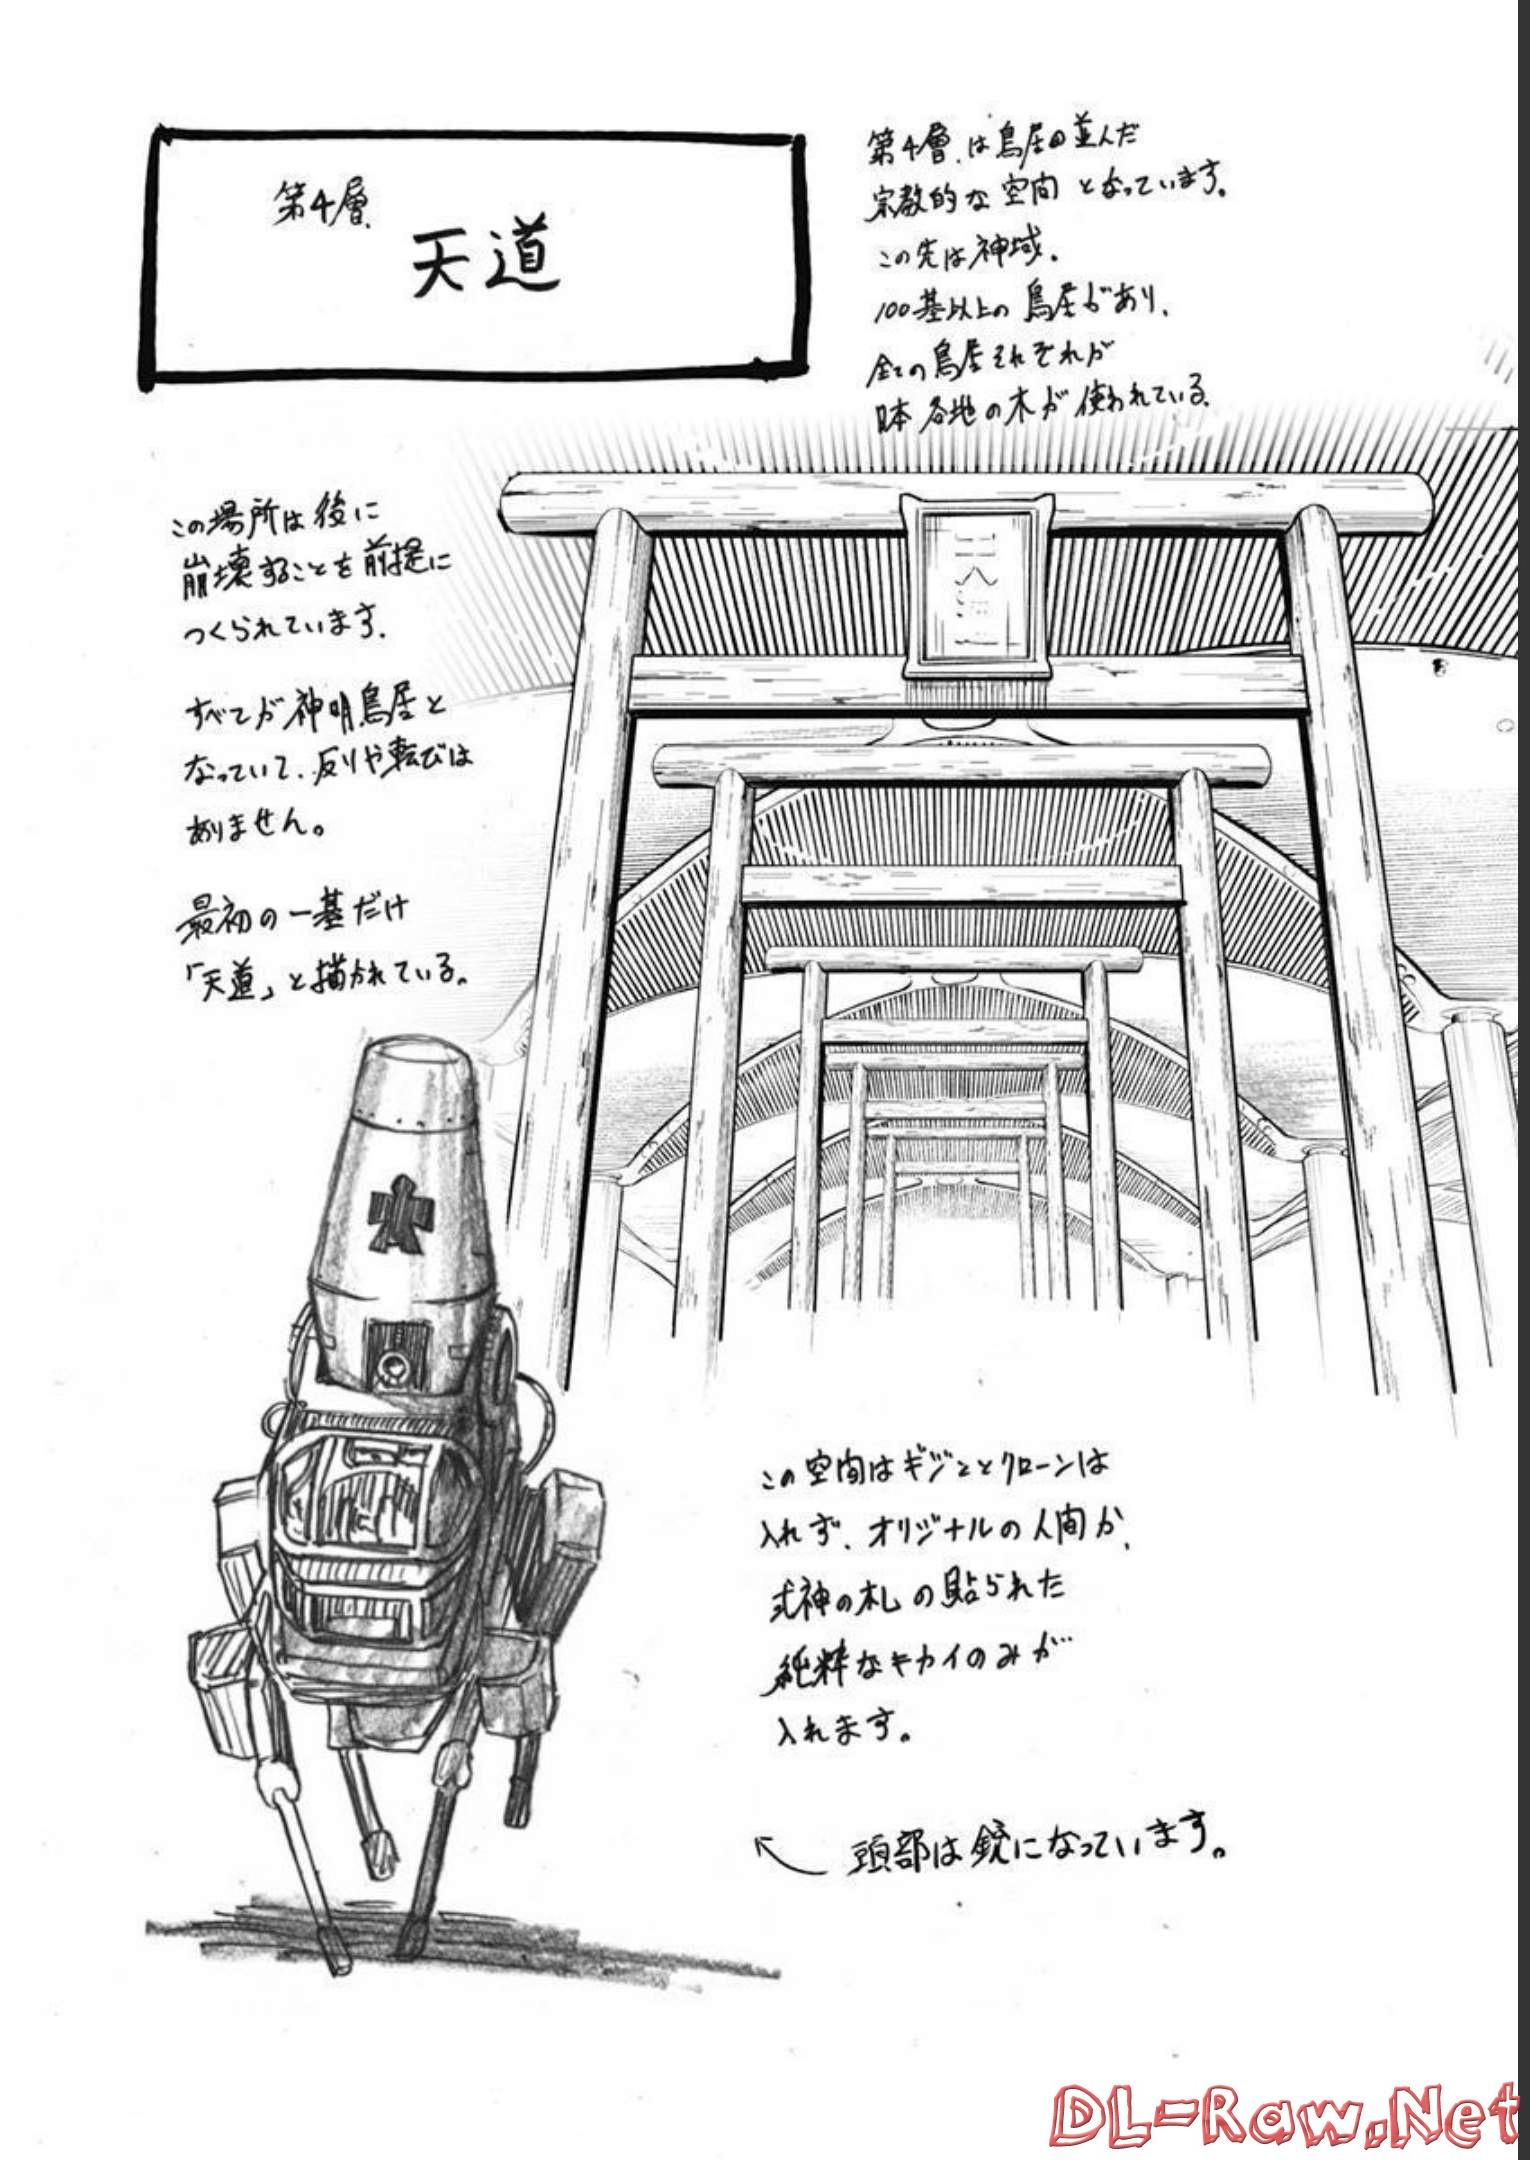 第4層
天道
第4層は鳥居の並んだ
宗教的な空間となっています。
この先は神域。
100基以上の鳥居があり、
全ての鳥居それぞれが
日本各地の木が使われている。
この場所は後に
崩壊することを前提に
つくられています。
すべてが神明鳥居と
なっていて、反りや転びは
ありません。
最初の一基だけ
「天道」と描かれている。
この空間はギジンとクローンは
入れず、オリジナルの人間か、
式神の札の貼られた
純粋なキカイのみが
入れます。
頭部は銃になっています。
DL-Raw.Net